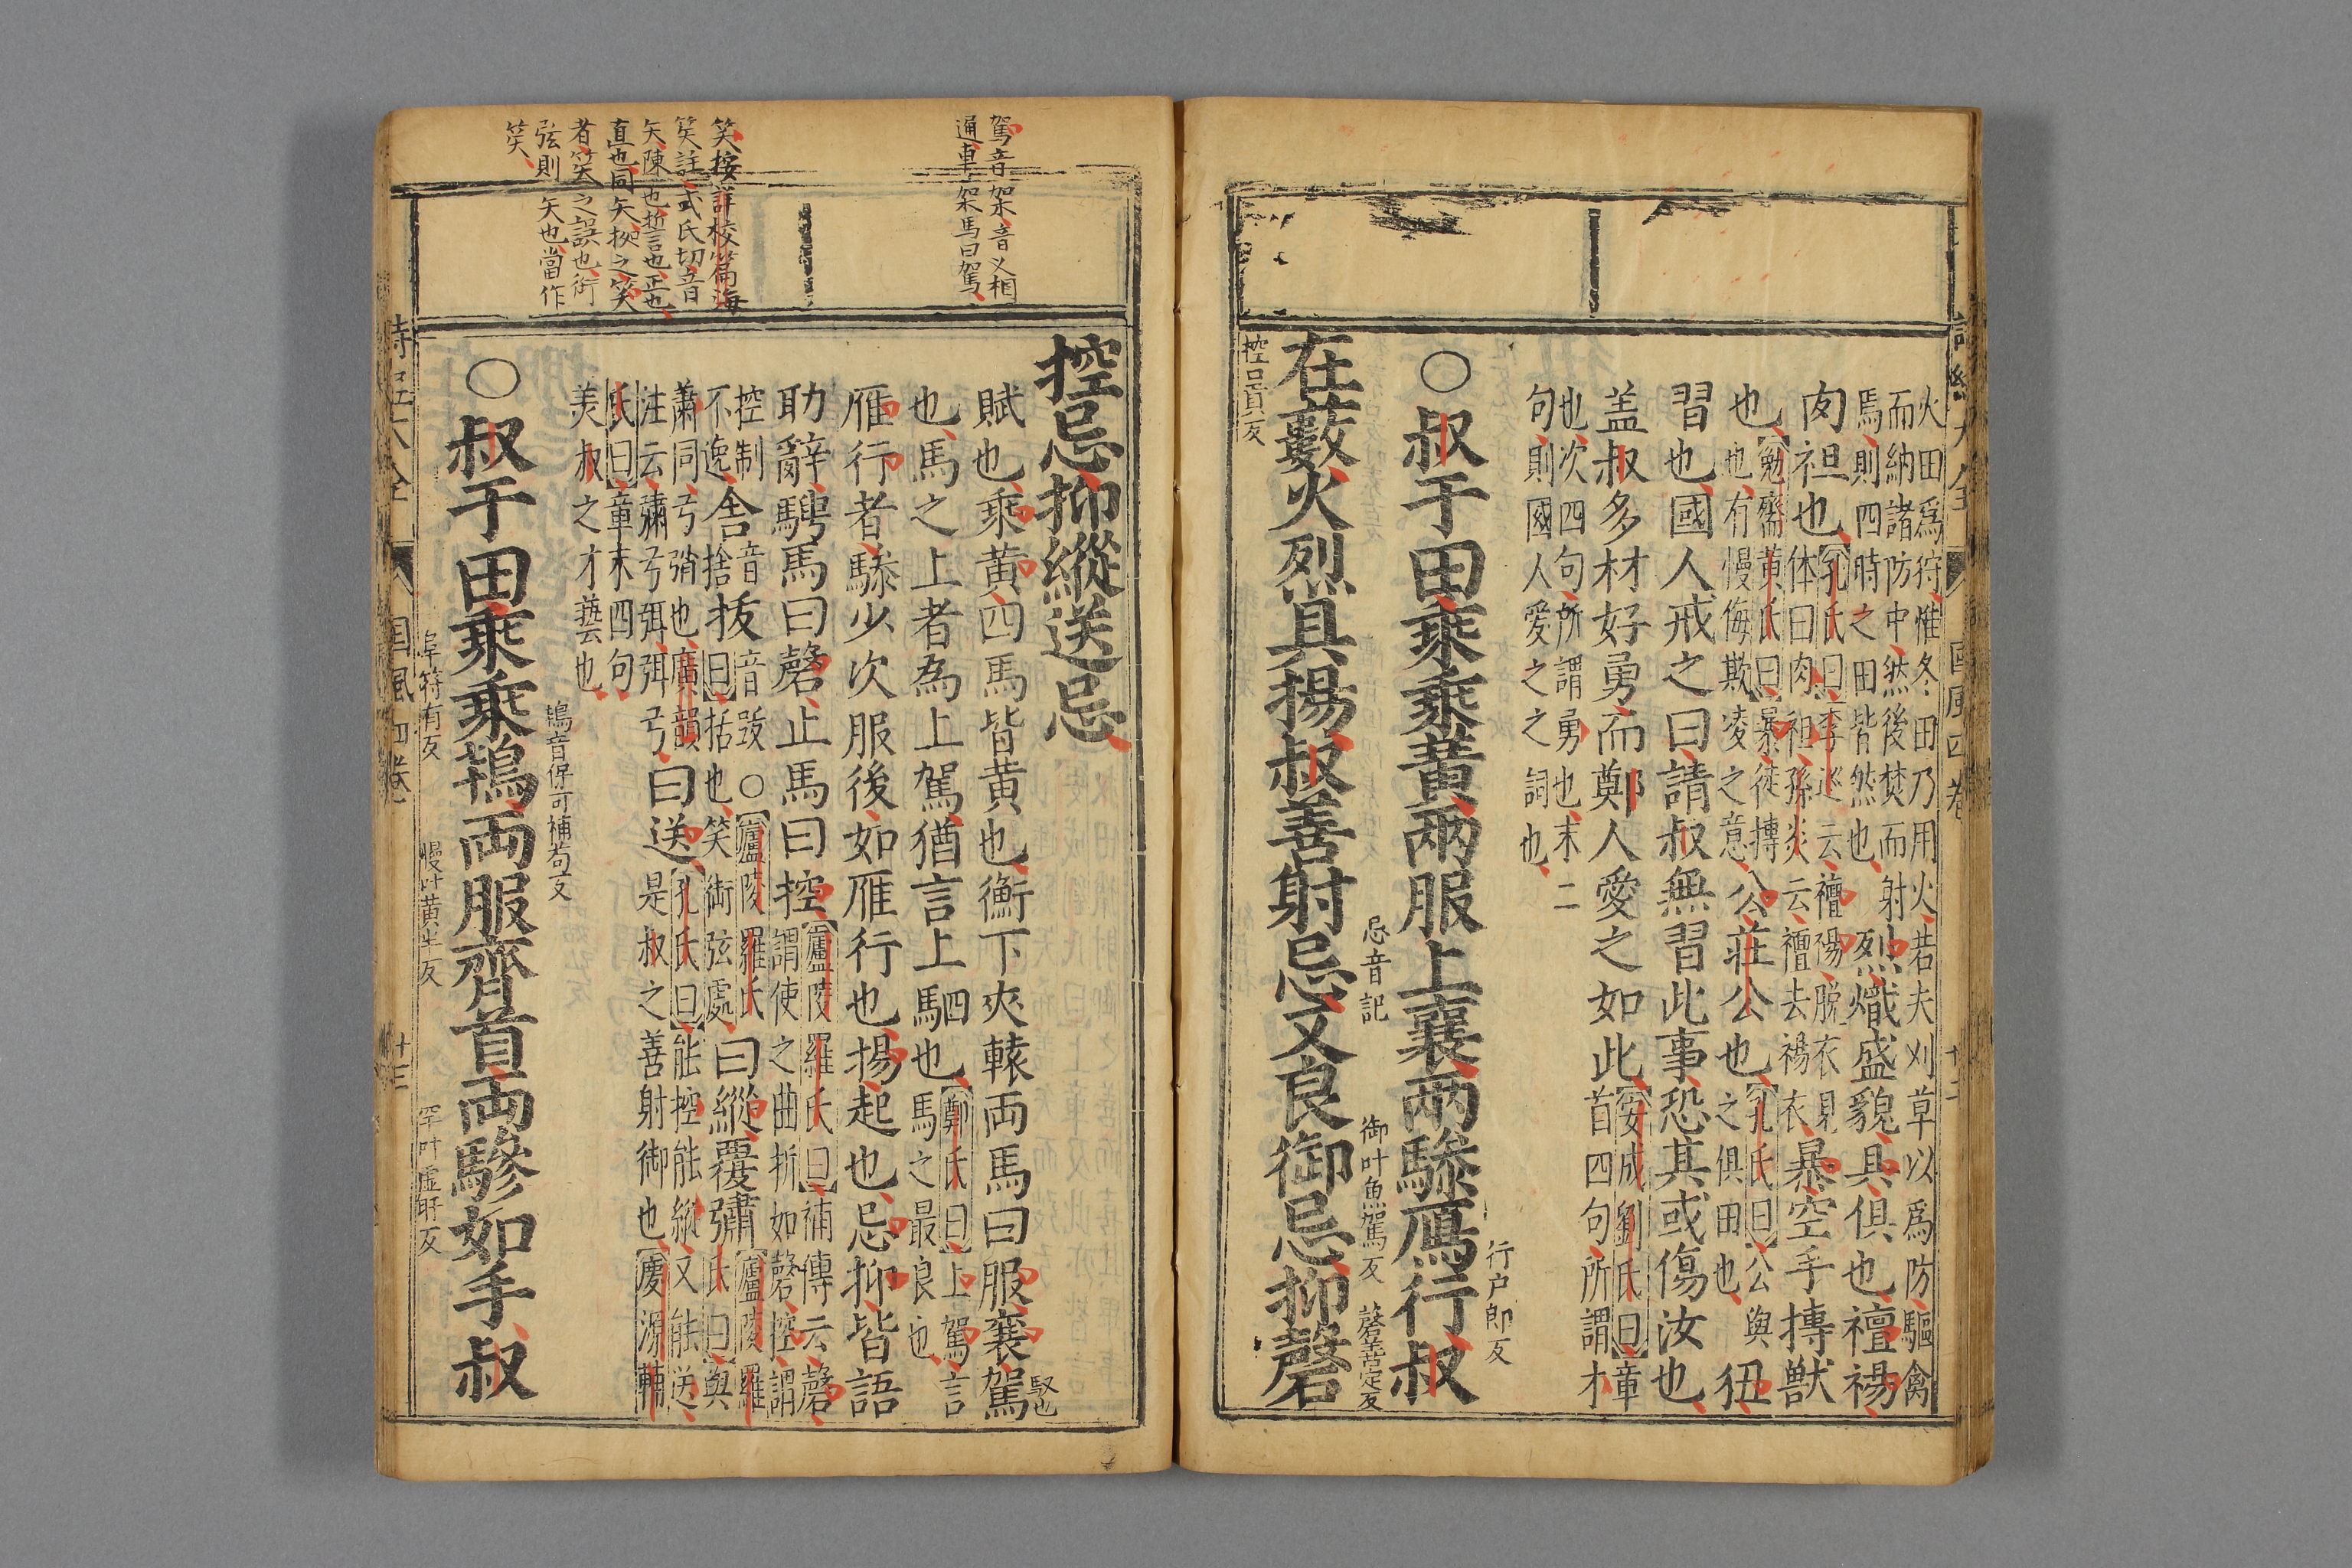 詩經大全 國風四卷
火田爲狩惟冬田乃用火若夫刈草以爲防驅禽
而納諸防中然後焚而射
焉則四時之田皆然也
烈熾盛貌具俱也襢裼
肉袒也
孔氏曰李巡云襢裼脫衣見
体曰肉袒孫炎云襢去裼衣
暴空手搏獸
也
勉齋黃氏曰暴徒搏
也有慢侮欺凌之意
公莊公也
孔氏曰公與
之俱田也
狃
習也國人戒之曰請叔無習此事恐其或傷汝也
盖叔多材好勇而鄭人愛之如此
安成劉氏曰章
首四句所謂才
也次四句所謂勇也末二
句則國人愛之之詞也
○叔于田乘乘黃兩服上襄兩驂鴈行叔
行户郎反
在藪火烈具揚叔善射忌又良御忌抑磬
忌音記 御叶魚駕反 磬苦定反
控口貢反
控忌抑縱送忌
賦也乘黃四馬皆黄也衡下夾轅両馬曰服襄駕
也馬之上者為上駕猶言上駟也
鄭氏曰上駕言
馬之最良也
雁行者驂少次服後如雁行也揚起也忌抑皆語
助辭騁馬曰磬止馬曰控
廬陵羅氏曰補傳云磬
謂使之曲折如磬控謂
控制
不逸
舍
音
捨
拔
音跋○廬陵羅氏
曰括也笑銜弦處
曰縱覆彇
廬陵羅
氏曰與
蕭同弓弰也廣韻
注云彇弓弭弭弓
曰送
孔氏曰能控能縱又能送
是叔之善射御也慶源輔
氏曰章末四句
美叔之才藝也
○叔于田乘乘鴇両服齊首両驂如手叔
鴇音保可補苟反
阜符有反 慢叶黄半反 罕叶虛旰反
駕音架音义相
通車架馬曰駕
笑按詳校篇海
笑註式氏切音
矢陳也誓也正也
直也同矢按之笑
者笑之誤也銜
弦則矢也當作
笑